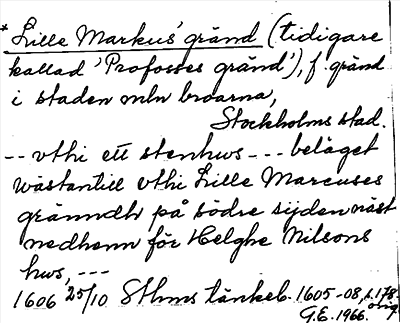 * Lille Markus' gränd (tidigare
kallad 'Profosses gränd'), f. gränd
i staden mln broarna,
Stockholms stad.
-- vthi ett stenhws --- beläget
wästantill vthi Lille Marcuses
gränndh på södre sijden näst
nedhenn för Helghe Nilsons
hws, ---
1606 25/10 Sthms tänkeb. 1605-08, s. 178.
G.E. 1966.